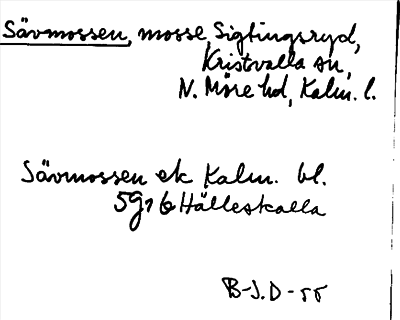 Sävmossen, mosse, Sigtingsryd,
Kristvalla sn,
N. Möre hd, Kalm. l.
Sävmossen ek Kalm. bl.
5g1b Hälleskalla
B-J.D-55